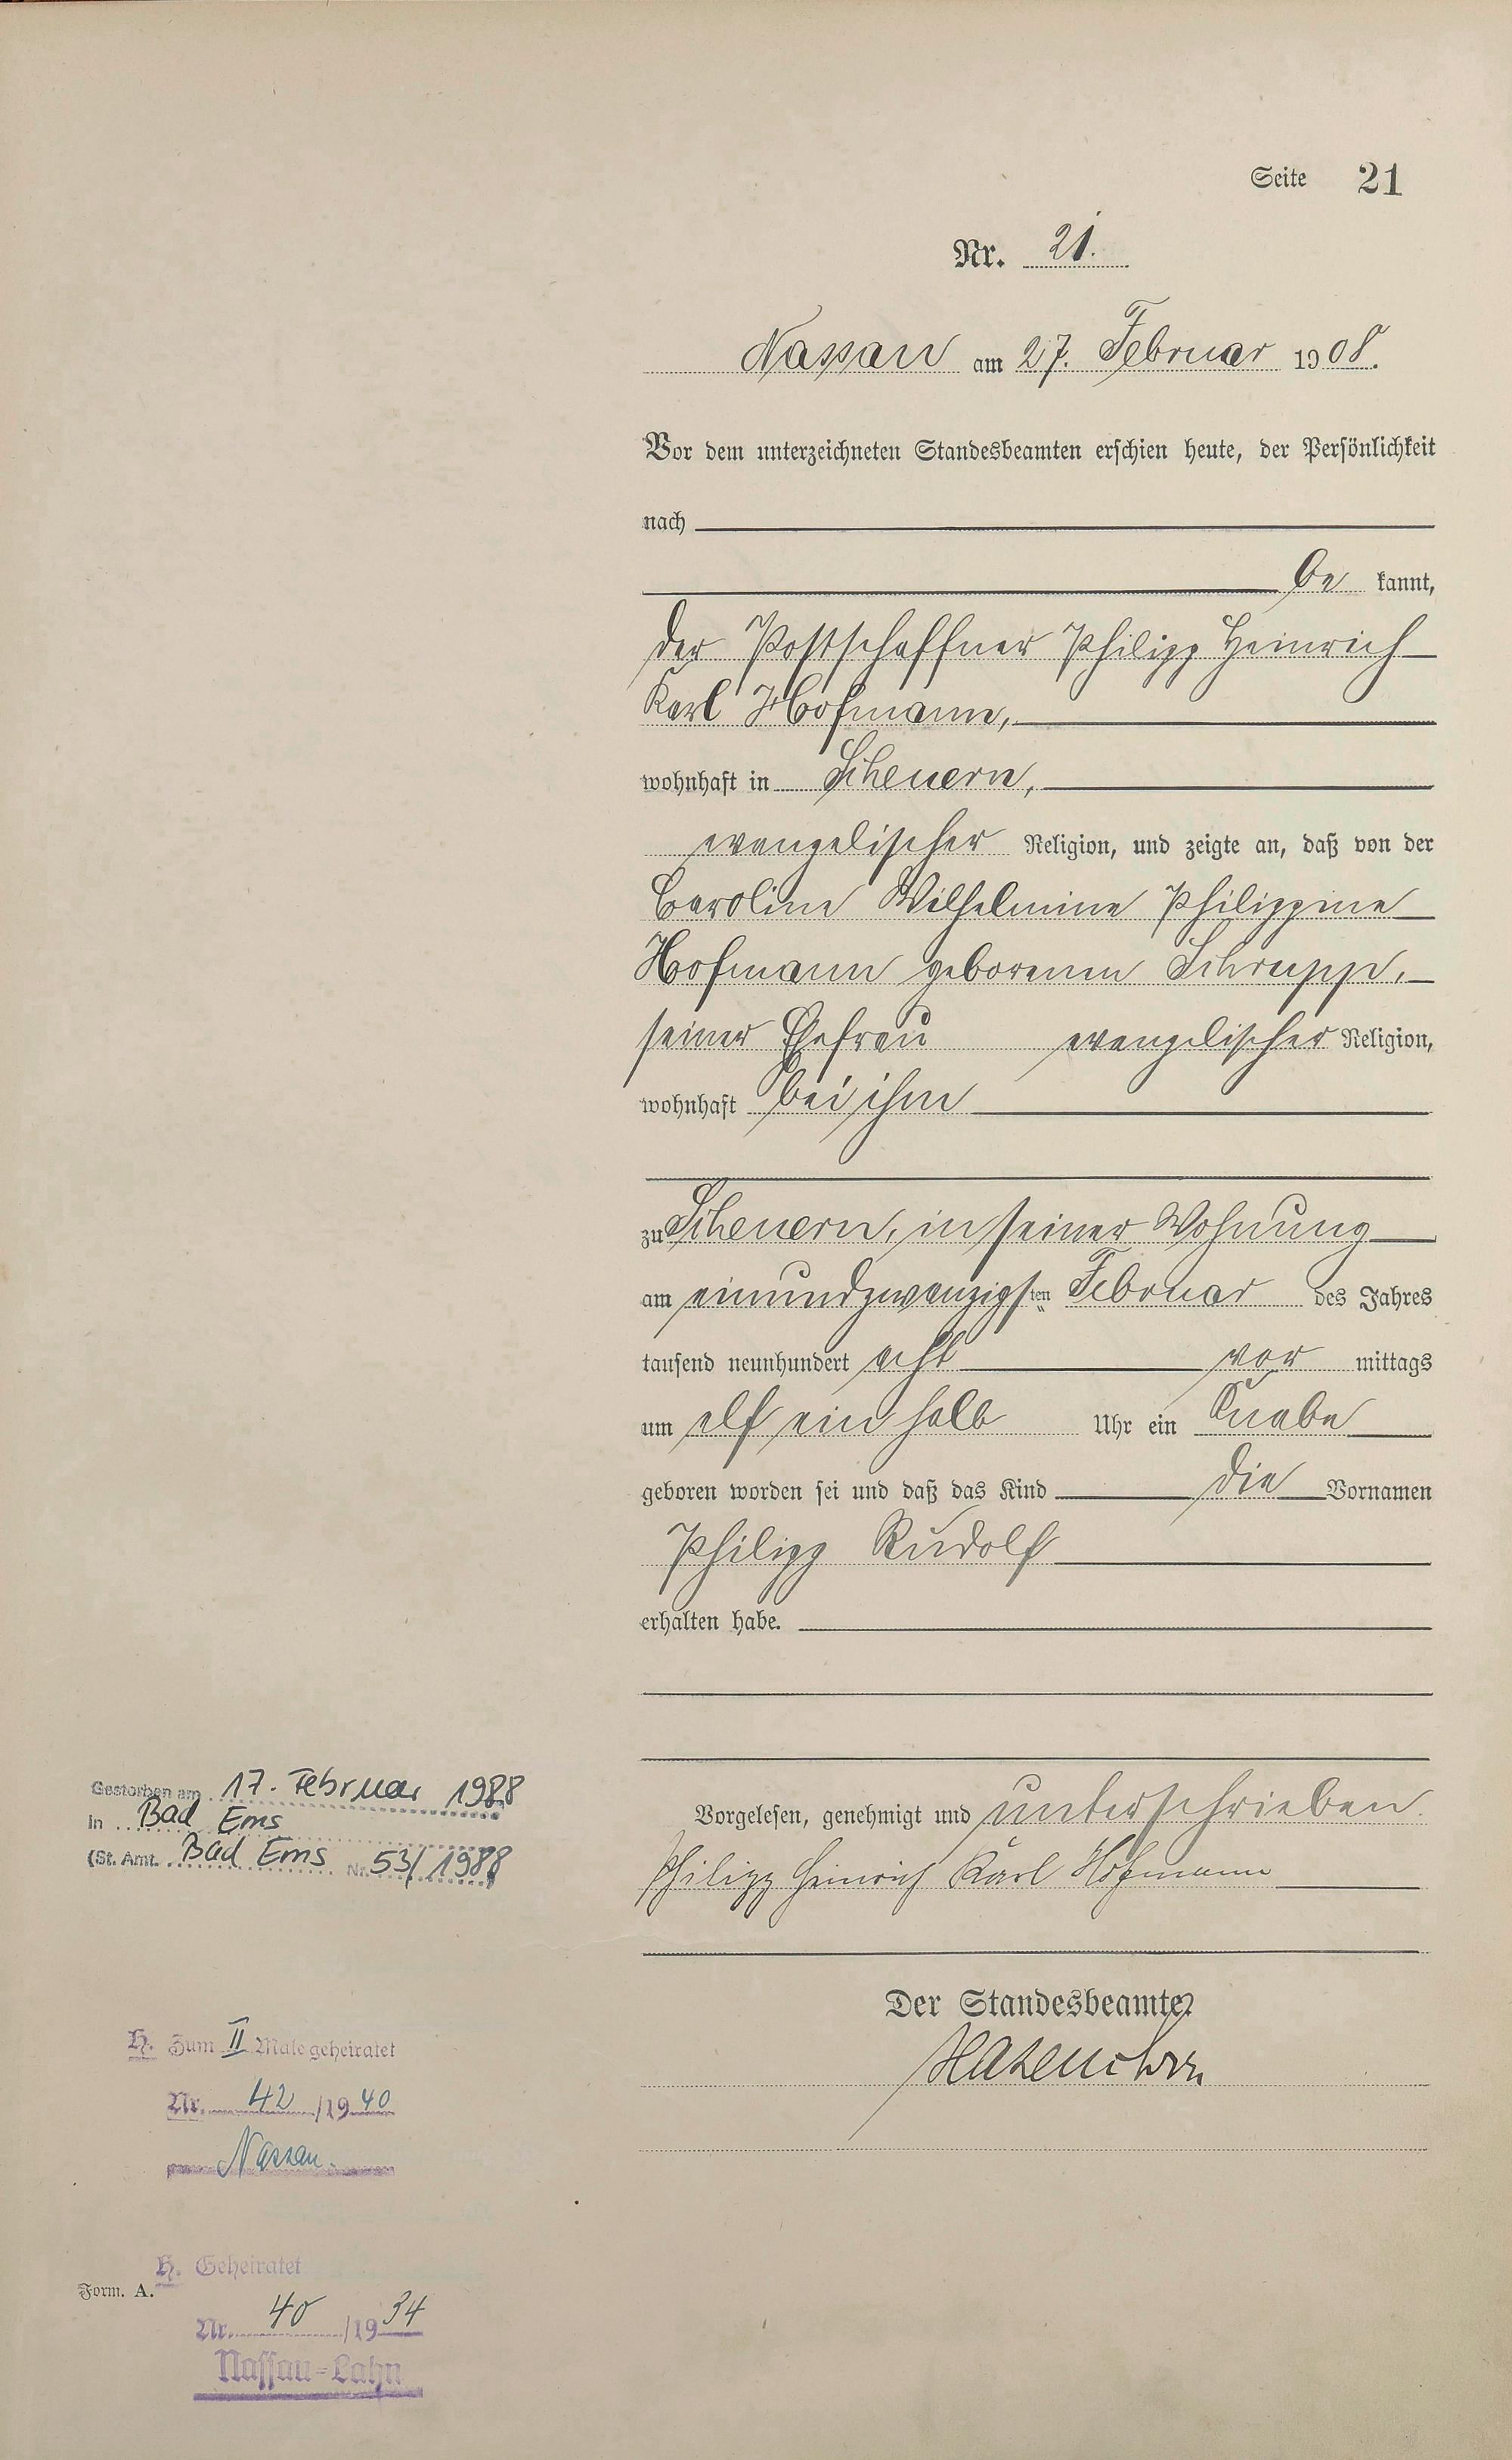 Seite 21
Nr. 21.
Nassau am 27. Februar 1908.
Vor dem unterzeichneten Standesbeamten erschien heute, der Persönlichkeit
nach
be kannt,
der Postschaffner Philipp Heinrich
Karl Hofmann,
wohnhaft in Scheuern,
evangelischer Religion, und zeigte an, daß von der
Caroline Wilhelmine Philippine
Hofmann geborenen Schrupp,
seiner Ehefrau evangelischer Religion,
wohnhaft bei ihm
zu Scheuern, in seiner Wohnung
am einundzwanzigsten Februar des Jahres
tausend neunhundert acht vor mittags
um elf ein halb Uhr ein Knabe
geboren worden sei und daß das Kind die Vornamen
Philipp Rudolf
erhalten habe.
Vorgelesen, genehmigt und unterschrieben.
Philipp Heinrich Karl Hofmann
Der Standesbeamte
Gestorben am 17. Februar 1988
in Bad Ems
(St. Amt. Bad Ems Nr. 53/1988
H. Zum II Male geheiratet
Nr. 42/1940
Nassau.
H. Geheiratet
Form. A.
Nr. 40/1934
Nassau-Lahn